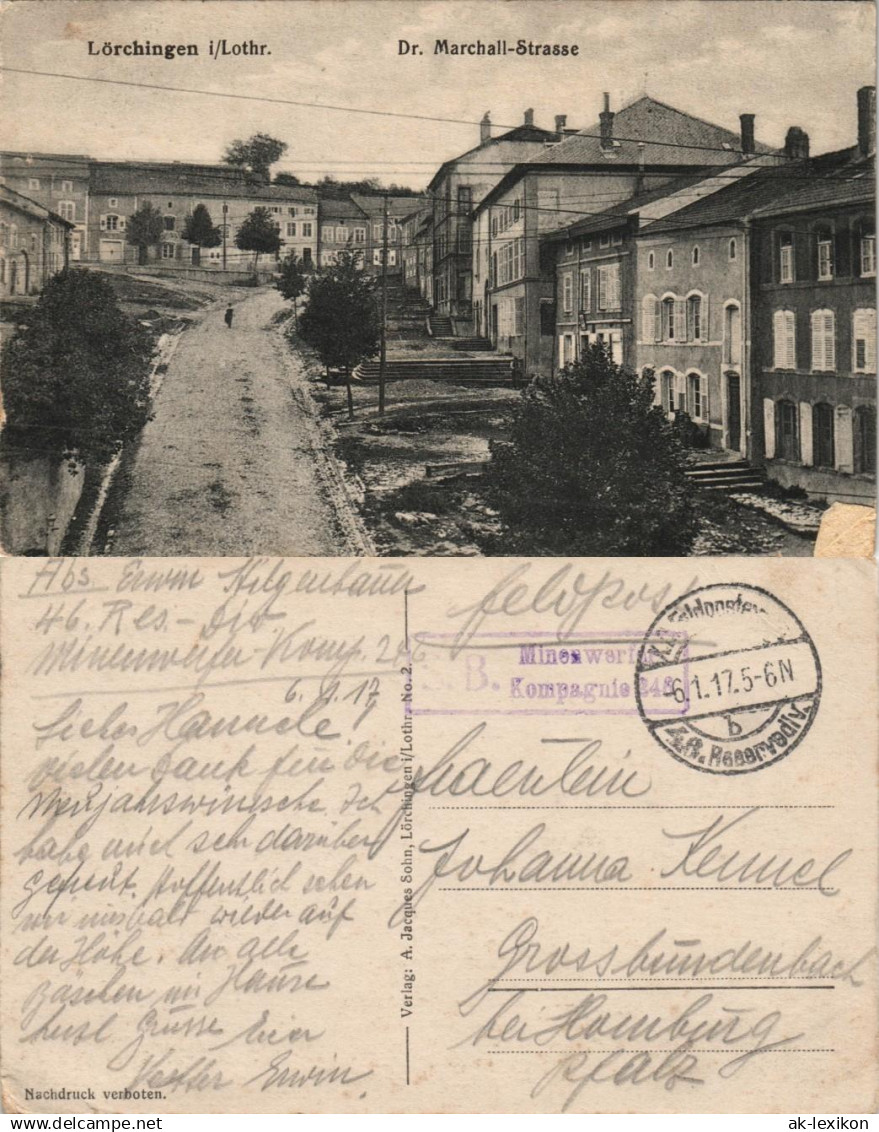 Lörchingen i/Lothr.
Dr. Marchall-Strasse
Abs. Erwin Hilgenbauer
46. Res.-Div.
Minenwerfer-Komp. 246
6.1.17
Liebes Hannele!
vielen Dank für Die
Neujahrswünsche. Ich
habe mich sehr darüber
gefreut. Hoffentlich sehen
wir uns bald wieder auf
der Höhe. An alle
zu Hause
herzl Grüsse Euer
Vetter Erwin
Nachdruck verboten.
Verlag: A. Jacques Sohn, Lörchingen i/Lothr. No. 2.
Feldpost
S. B.
Minenwerfer
Kompagnie 246
6.1.17.5-6N
b
Reserve
Fraeulein
Johanna Kennel
Grossbundenbach
bei Homburg
Pfalz
ak-lexikon